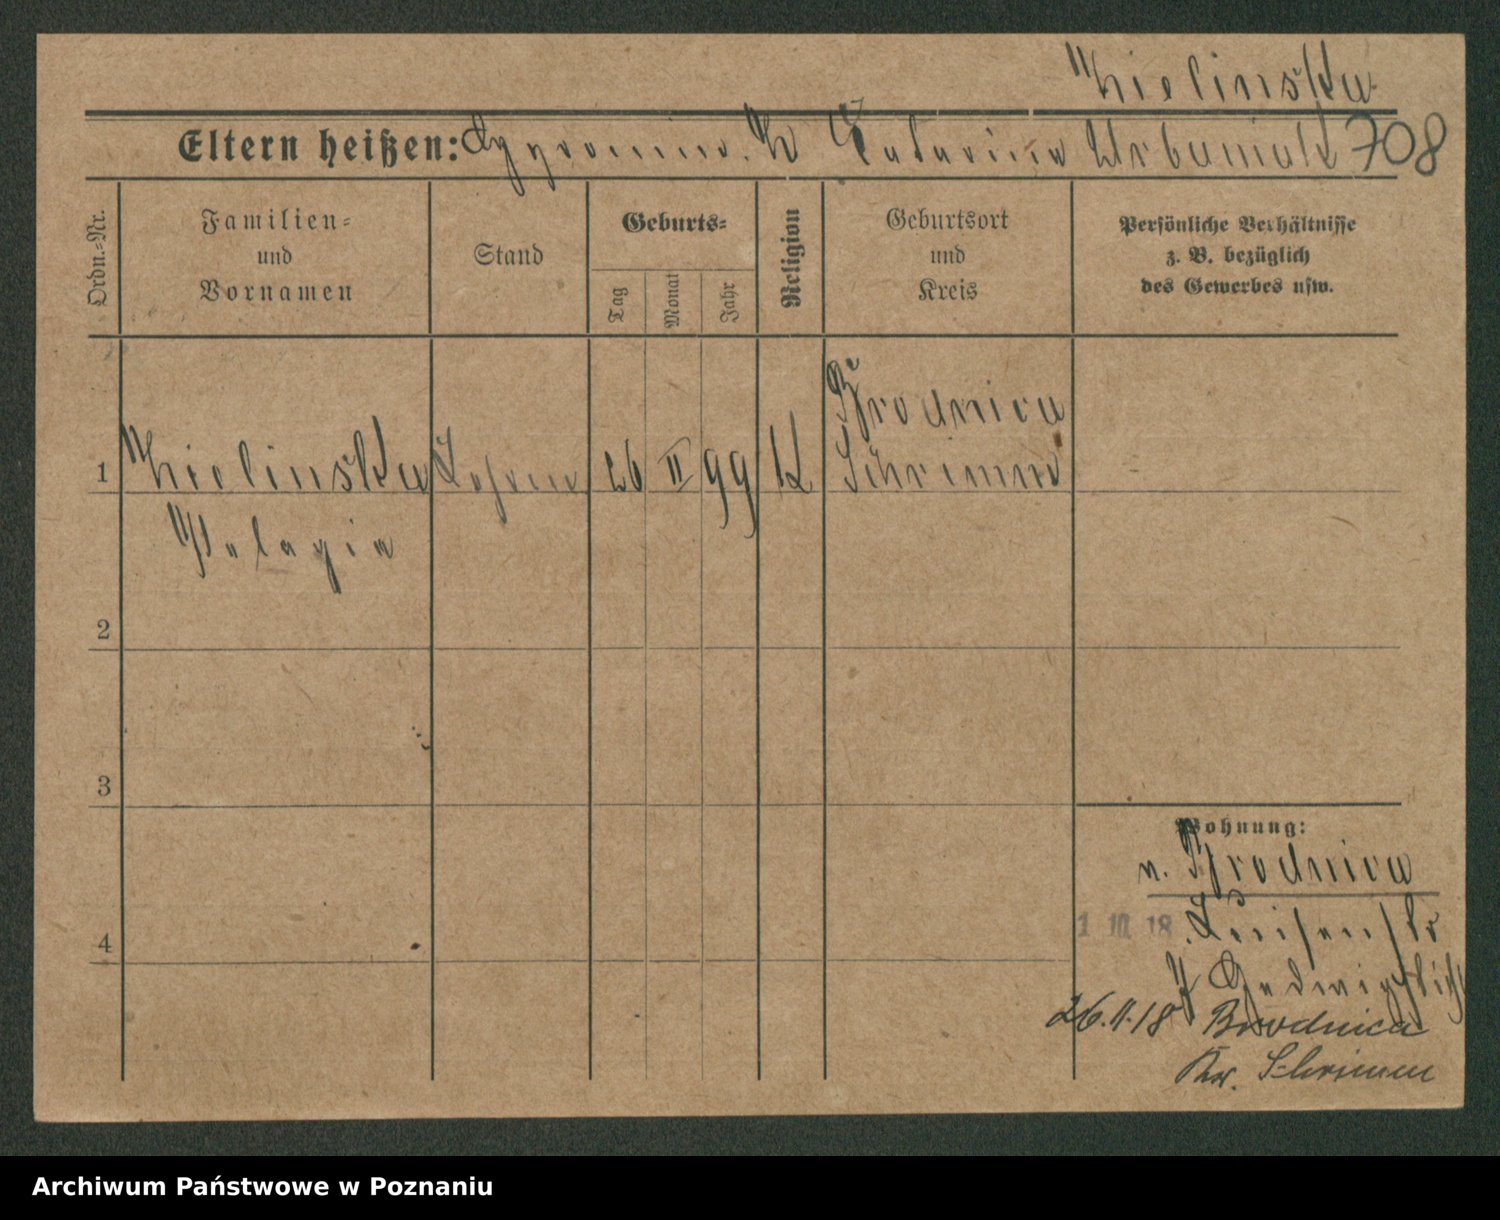 Zielinska
Eltern heißen: Katarina Urbaniak 708
Ordn.=Nr.
Familien=
und
Vornamen
Stand
Geburts=
Tag
Monat
Jahr
Religion
Geburtsort
und
Kreis
Persönliche Verhältnisse
z. B. bezüglich
des Gewerbes usw.
Brodnica
1 Zielinska 26 II 99 K Schrimm
Pelagia
2
3
Wohnung:
n. Brodnica
4
1 10 18. Luisenstr
26.11.18 Brodnica
Kr. Schrimm
Archiwum Państwowe w Poznaniu